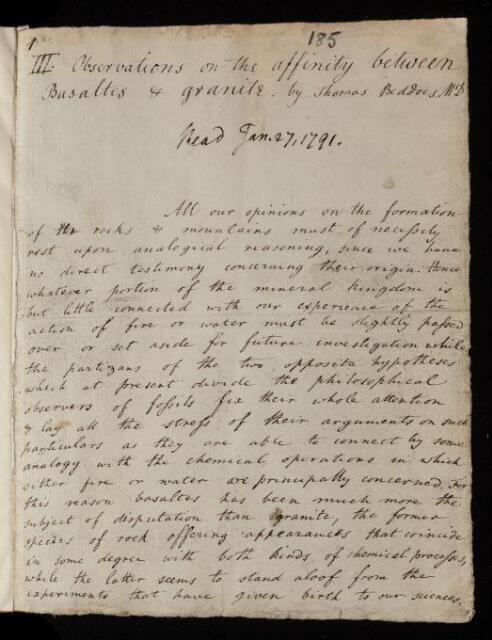 1
185
III. Observations on the affinity between
Basaltes & granite. by Thomas Beddoes, MD
Read Jan. 27, 1791.
All our opinions on the formation
of the rocks & mountains must of necessity
rest upon analogical reasoning, since we have
no direct testimony concerning their origin. Hence
whatever portion of the mineral kingdom is
but little connected with our experience of the
action of fire or water must be slightly passed
over or set aside for future investigation while
the partizans of the two opposite hypotheses
which at present divide the philosophical
observers of fossils fix their whole attention
& lay all the stress of their arguments on such
particulars as they are able to connect by some
analogy with the chemical operations in which
either fire or water are principally concerned. For
this reason basaltes has been much more the
subject of disputation than granite, the former
species of rock offering appearances that coincide
in some degree with both kinds of chemical processes,
while the latter seems to stand aloof from the
experiments that have given birth to our sciences.